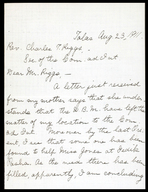 Talas Aug 23, 1911
Rev. Charles T. Riggs,
Sec of the Com. ad Int.
Dear Mr. Riggs,—
A letter just received
from my mother says that she under-
stands that the A.B.M. have left the
matter of my location to the Com.
ad Int. Moreover by the last
I see that some one has been
found to help Miss Jones at
Pasha. As the need there has been
filled, apparently, I am concluding